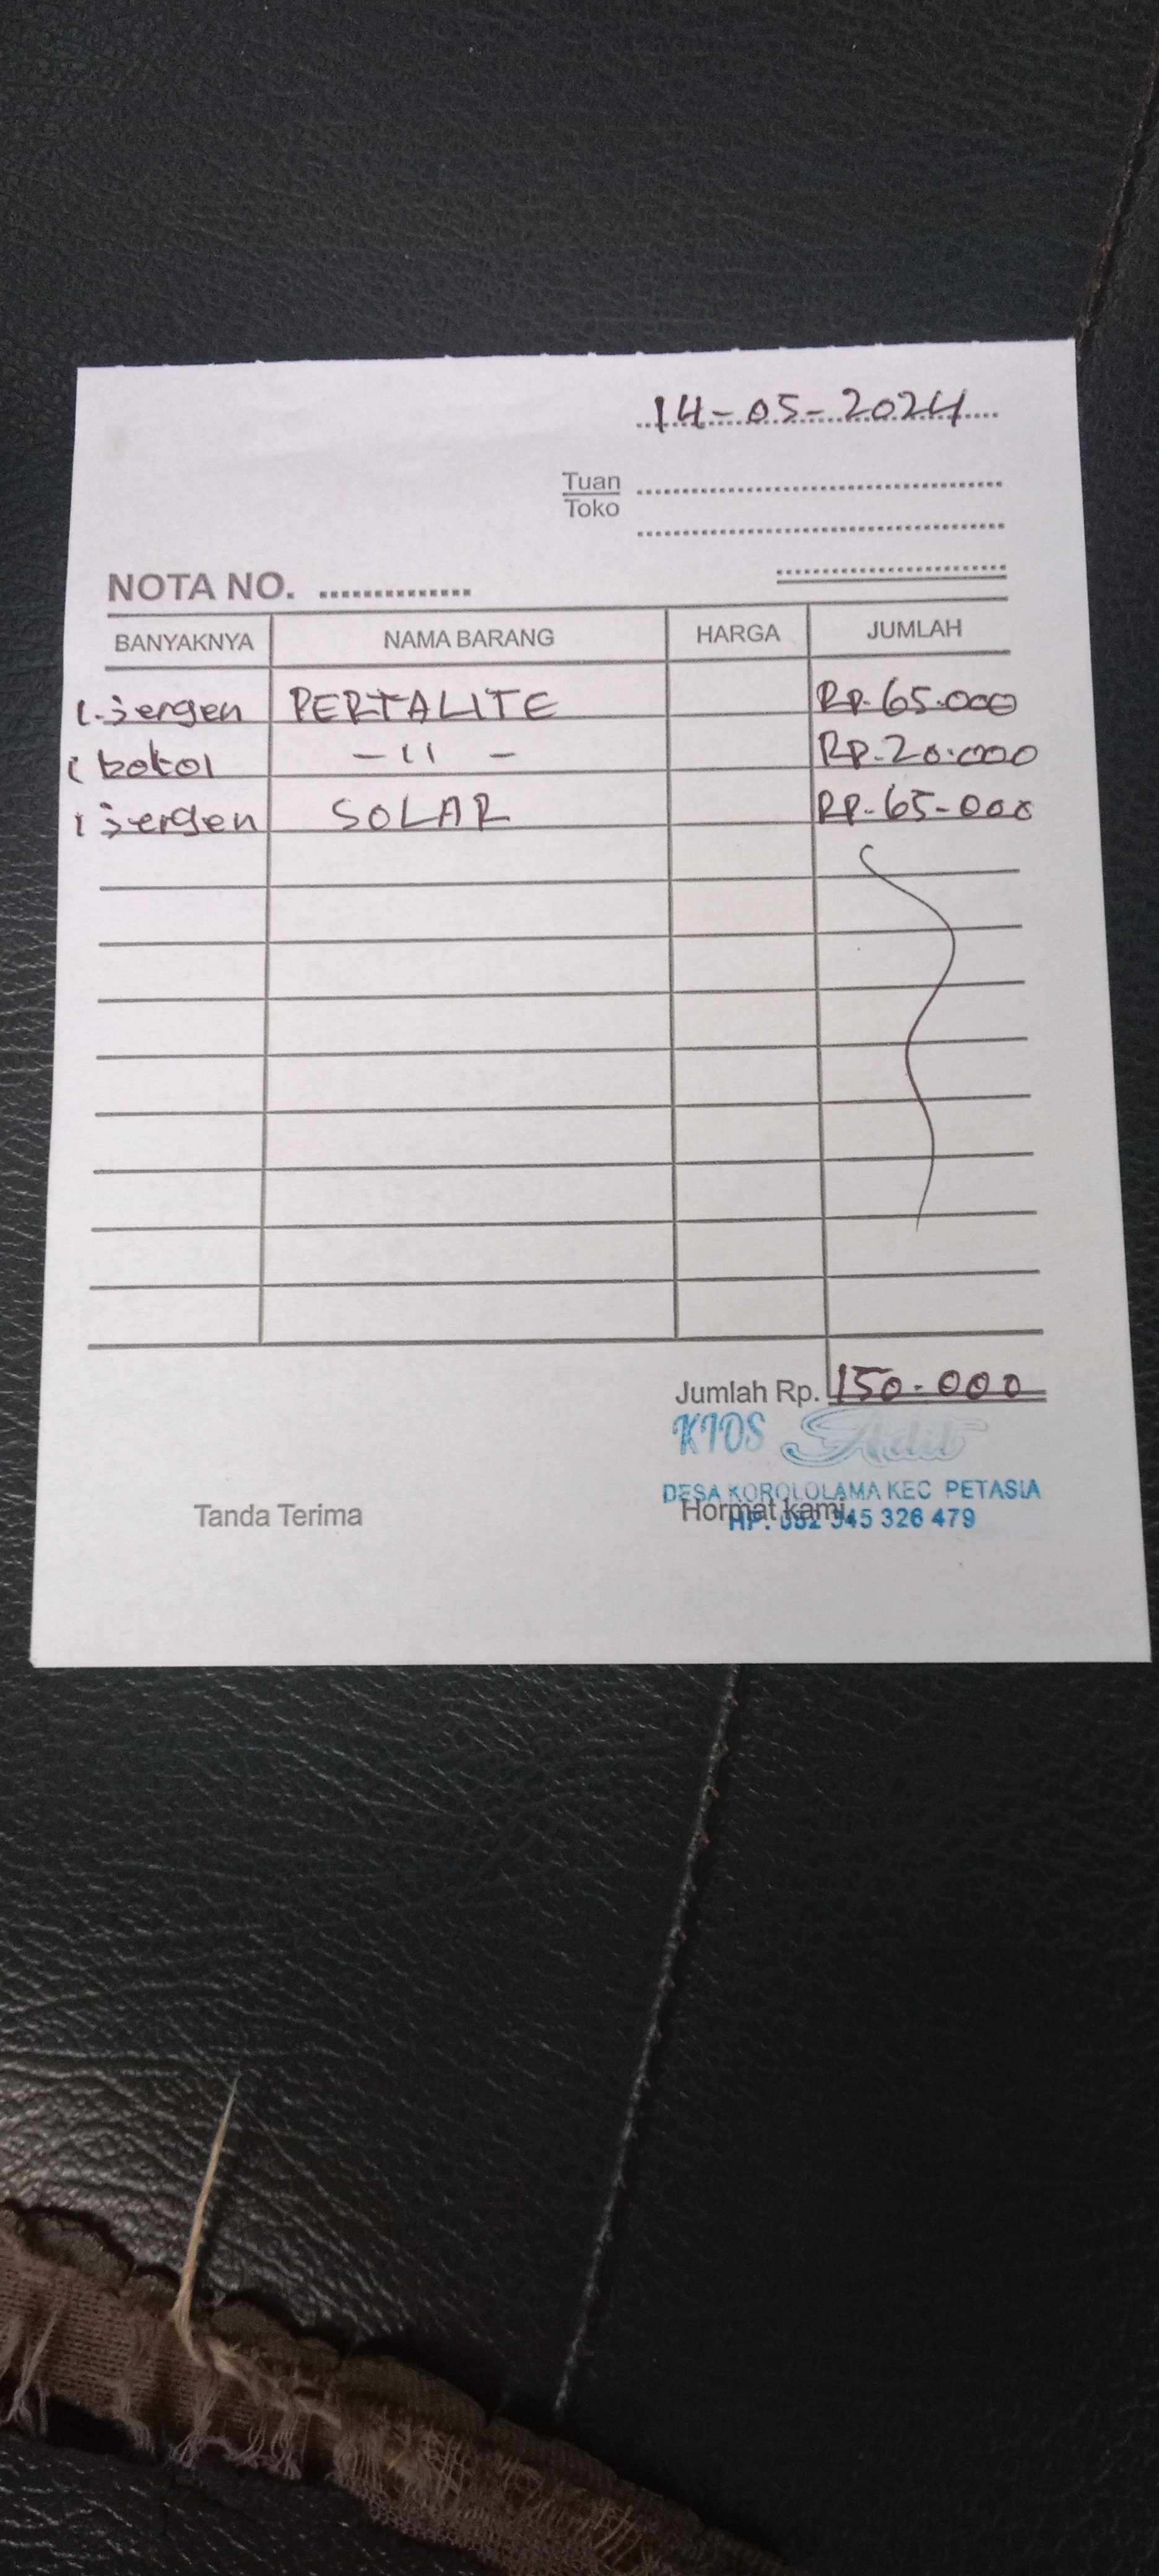 14-05-2024
Tuan
Toko
NOTA NO.
BANYAKNYA NAMA BARANG HARGA JUMLAH
1 jergen PERTALITE Rp. 65.000
1 botol -11- Rp. 20.000
1 jergen SOLAR Rp. 65.000
Jumlah Rp. 150.000
KIOS Adib
DESA KOROLOLAMA KEC PETASIA
Tanda Terima Hormat kami,
HP. 082 345 326 479